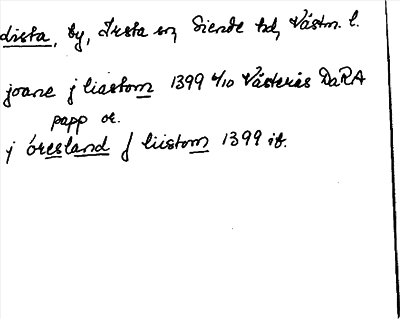 Lista, by, Irsta sn, Siende hd, Västm. l.
joane j liastom 1399 4/10 Västerås DaRA
papp or.
j öresland j liistom 1399 ib.